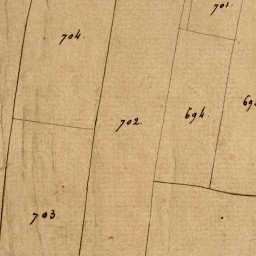 701.
704.
702.
694.
703